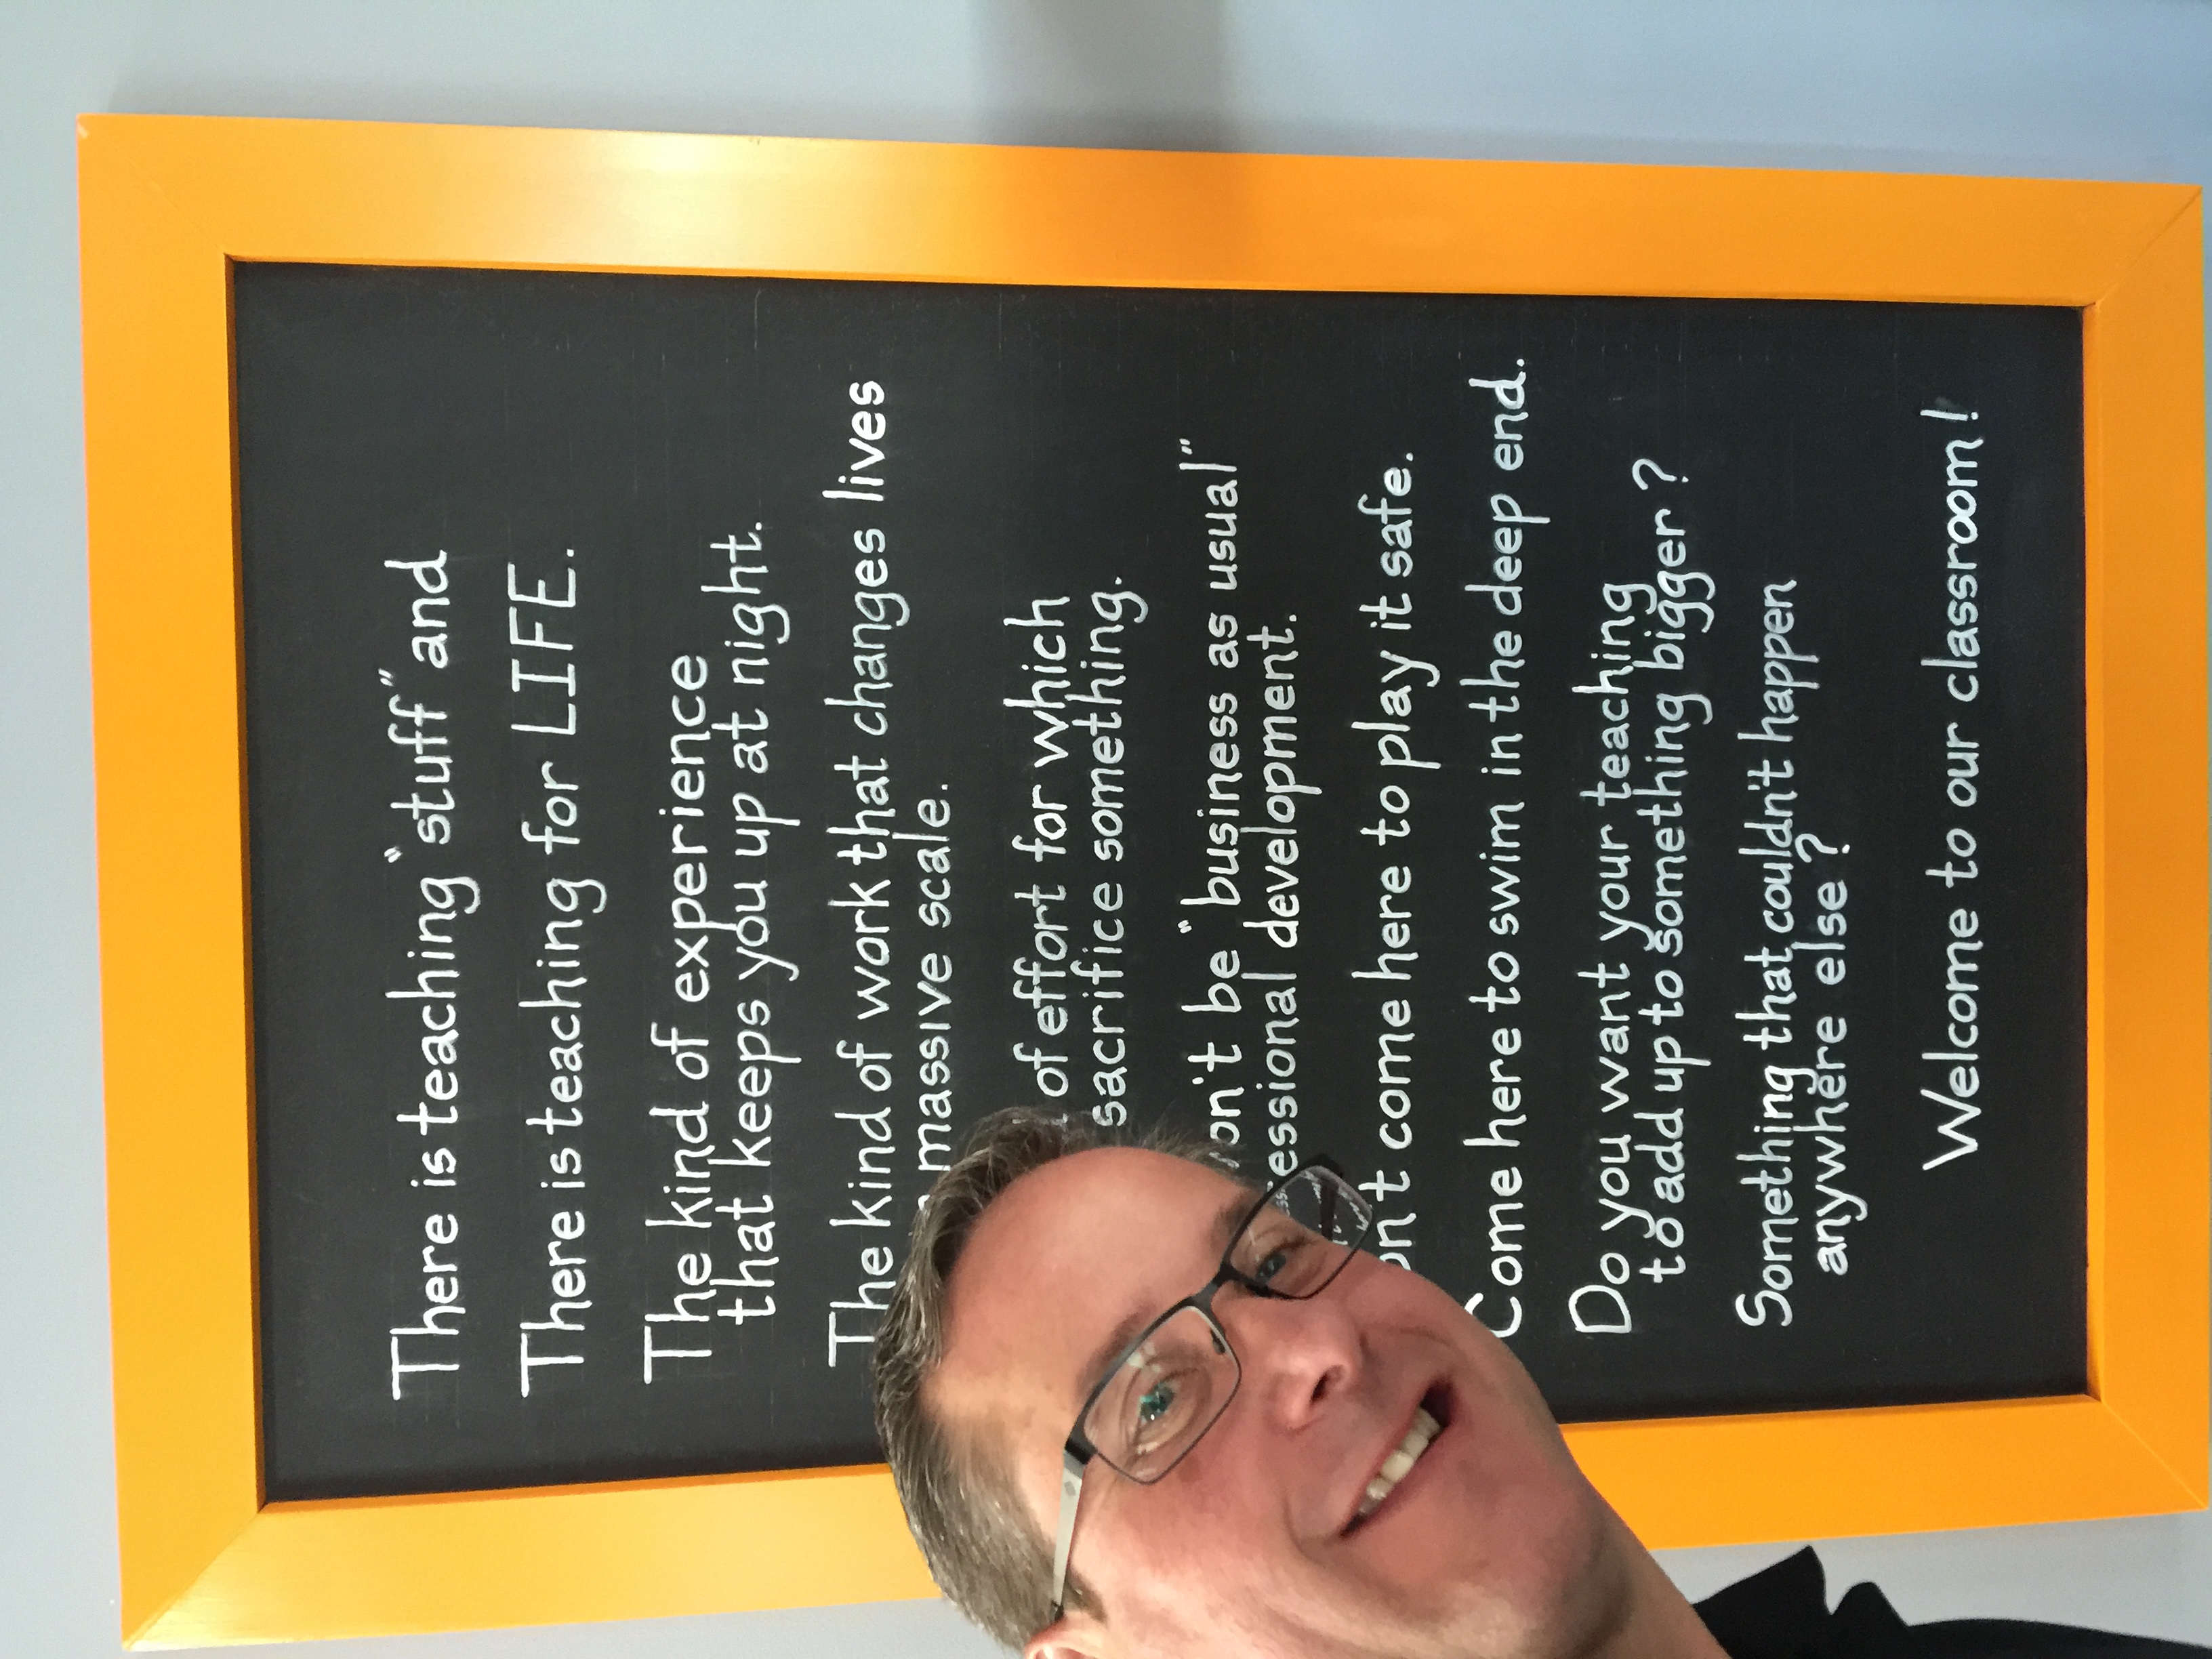 There is teaching "stuff" and
There is teaching for LIFE.
The kind of experience
that keeps you up at night.
The kind of work that changes lives
massive scale.
of effort for which
sacrifice something.
be "business as usual"
development.
come here to play it safe.
Come here to swim in the deep end.
Do you want your teaching
to add up to something bigger?
Something that couldn't happen
anywhere else?
Welcome to our classroom!